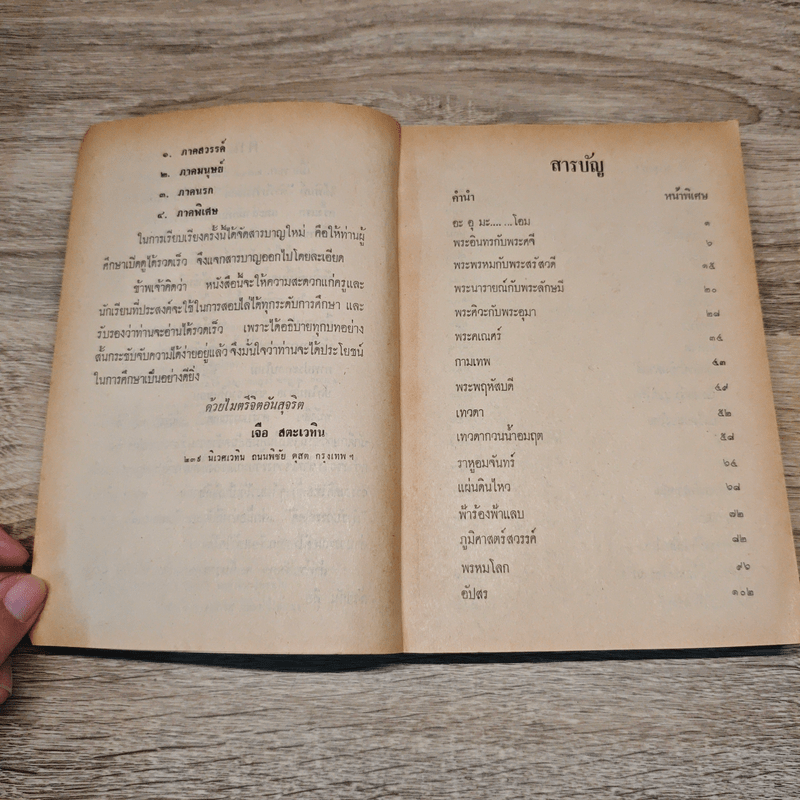 ๑. ภาคสวรรค์
๒. ภาคมนุษย์
๓. ภาคนรก
๔. ภาคพิเศษ
ในการเรียบเรียงครั้งนี้ได้จัดสารบาญใหม่ คือให้ท่านผู้
ศึกษาเปิดดูได้รวดเร็ว จึงแจกสารบาญออกไปโดยละเอียด
ข้าพเจ้าคิดว่า หนังสือนี้จะให้ความสะดวกแก่ครูและ
นักเรียนที่ประสงค์จะใช้ในการสอบไล่ได้ทุกระดับการศึกษา และ
รับรองว่าท่านจะอ่านได้รวดเร็ว เพราะได้อธิบายทุกบทอย่าง
สั้นกระชับจับความได้ง่ายอยู่แล้ว จึงมั่นใจว่าท่านจะได้ประโยชน์
ในการศึกษาเป็นอย่างดียิ่ง
ด้วยไมตรีจิตอันสุจริต
เจือ สตะเวทิน
๒๓๙ นิเวศเวทิน ถนนพิชัย ดุสิต กรุงเทพ ฯ
สารบัญ
คำนำ หน้าพิเศษ
อะ อุ มะ.... ...โอม ๑
พระอินทรกับพระศจี ๖
พระพรหมกับพระสรัสวดี ๑๕
พระนารายณ์กับพระลักษมี ๒๐
พระศิวะกับพระอุมา ๒๘
พระคเณศร์ ๓๕
กามเทพ ๔๓
พระพฤหัสบดี ๔๙
เทวดา ๕๒
เทวดากวนน้ำอมฤต ๕๘
ราหูอมจันทร์ ๖๔
แผ่นดินไหว ๖๘
ฟ้าร้องฟ้าแลบ ๗๒
ภูมิศาสตร์สวรรค์ ๘๒
พรหมโลก ๙๖
อัปสร ๑๐๒